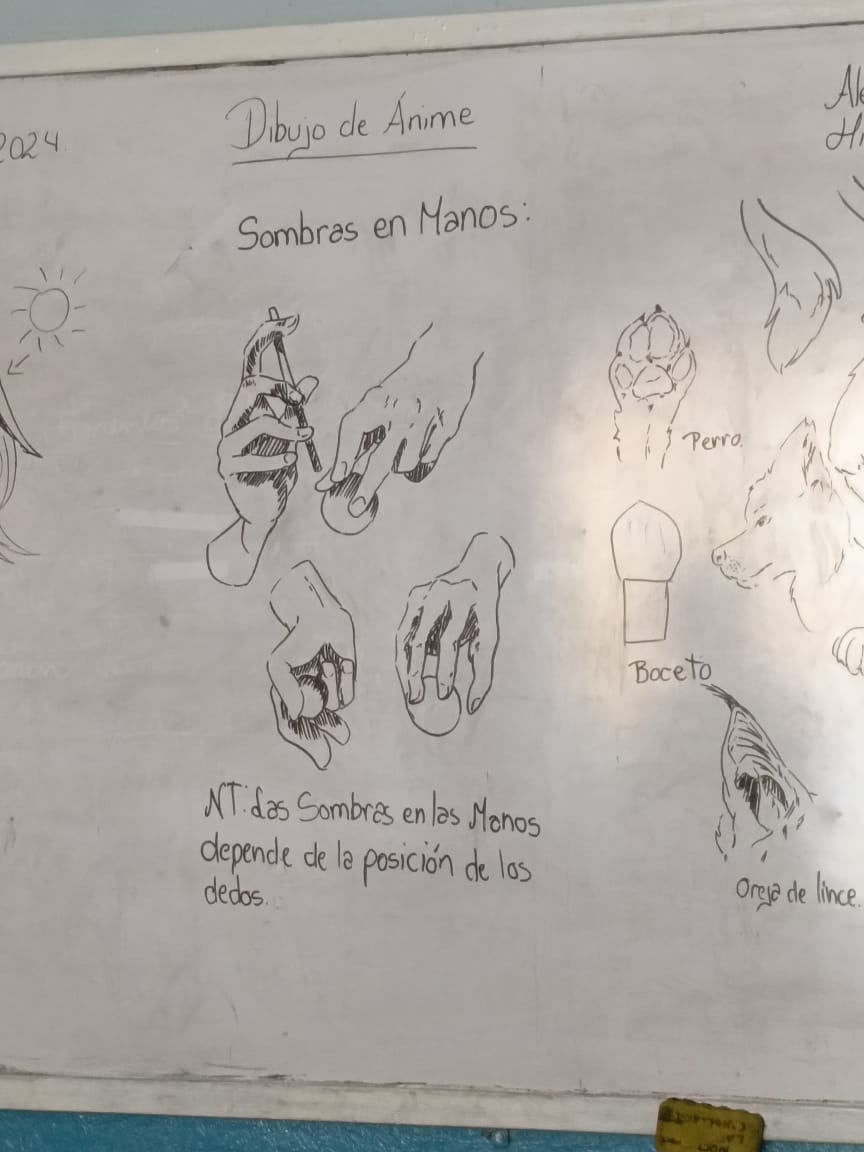 2024
Dibujo de Ánime
Sombras en Manos:
NT: Las Sombras en las Manos
depende de la posición de los
dedos.
Perro
Boceto
Oreja de lince.